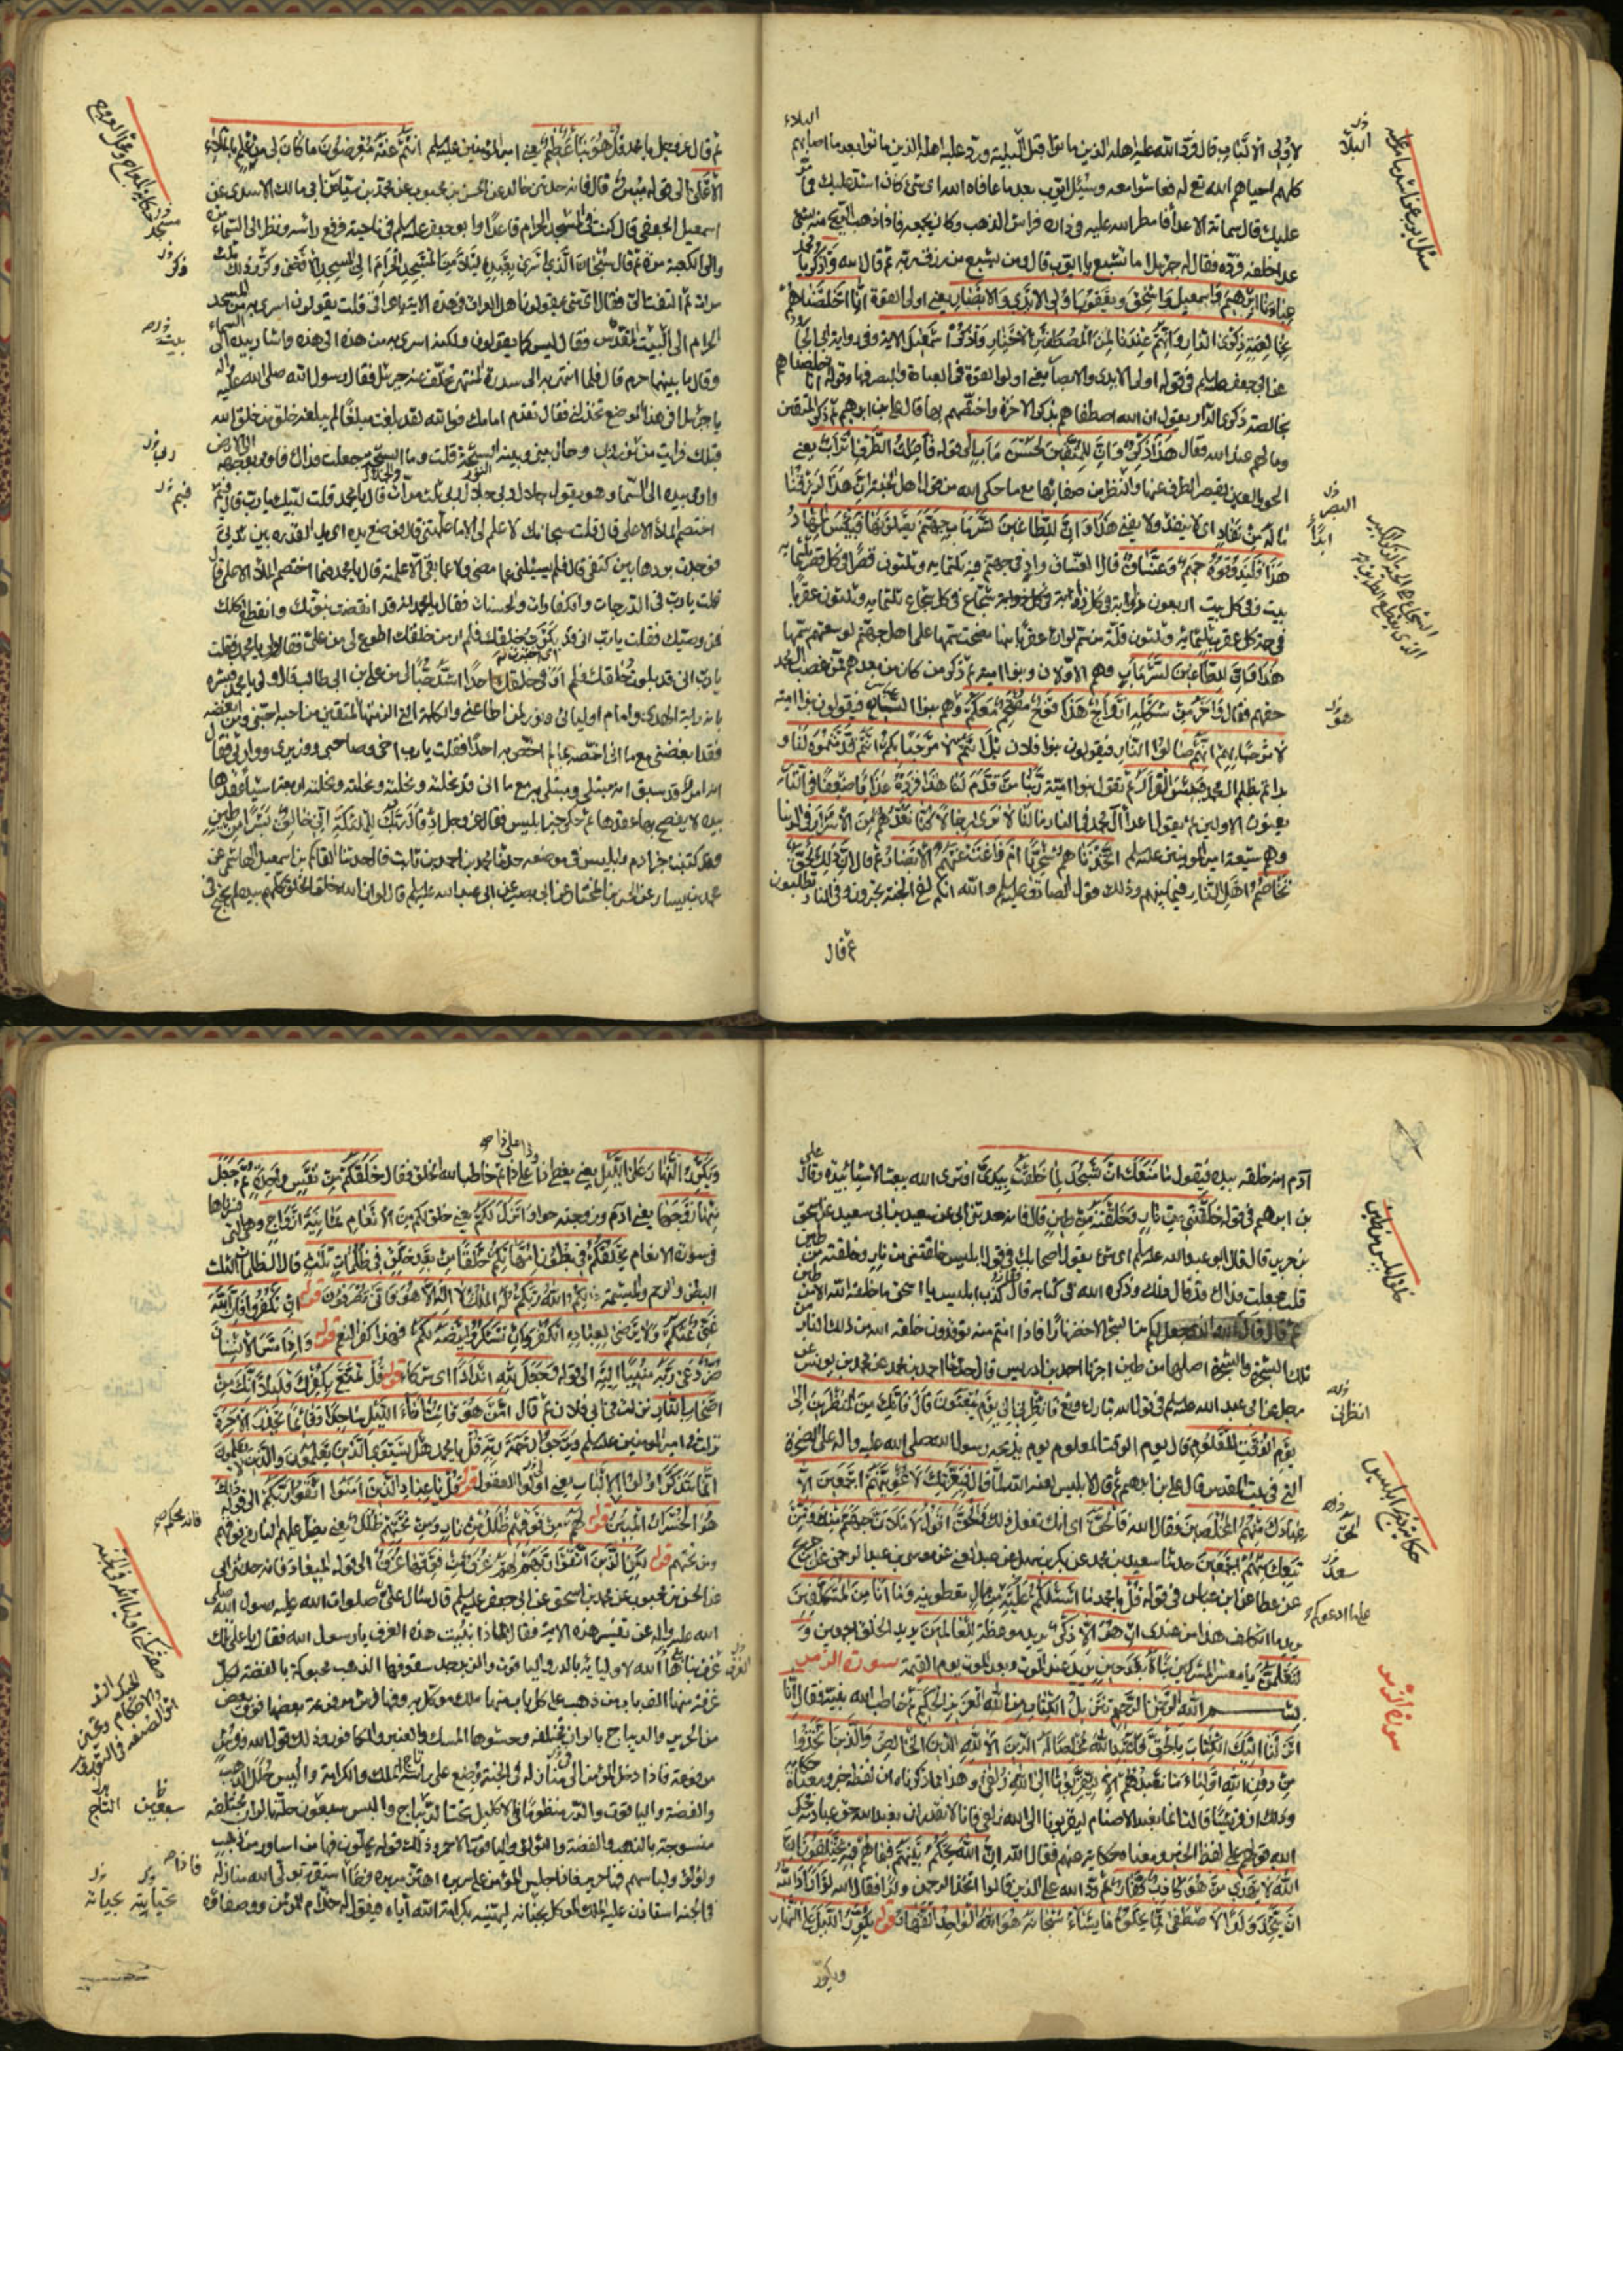 لاولى الالباب قال فرد الله عليه اهله الذين ماتوا قبل البلية ورد عليه اهله الذين ماتوا بعد ما اصابهم
البلاء
كلهم احياهم الله تع له فعاشوا معه وسئل ايوب بعد ما عافاه الله اى شئ كان اشد عليك مما مر
عليك قال شماتة الاعداء فامطر الله عليه فى داره فراش الذهب وكان يجمعه فاذا ذهب الريح منه بشئ
عدا خلفه فرده فقال له جبرئيل اما تشبع يا ايوب قال ومن يشبع من رزق ربه ثم قال الله واذكر يا محمد
عبادنا ابرهيم واسمعيل واسحق ويعقوب اولى الايدى والابصار يعنى اولى القوة انا اخلصناهم
بخالصة ذكرى الدار وانهم عندنا لمن المصطفين الاخيار واذكر اسمعيل الاية وفى رواية ابى الجارود
عن ابى جعفر عليه السلم فى قوله اولى الايدى والابصار يعنى اولوا القوة فى العبادة والبصر فيها وقوله انا اخلصناهم
بخالصة ذكرى الدار يقول ان الله اصطفاهم بذكر الاخرة واختصهم بها قال على بن ابرهيم ثم ذكر المتقين
وما لهم عند الله فقال هذا ذكر وان للمتقين لحسن مآب الى قوله قاصرات الطرف اتراب يعنى
الحور العين يقصر الطرف عنها والنظر من صفائها مع ما حكى الله من قول اهل الجنة ان هذا لرزقنا
ما له من نفاد اى لا ينفد ولا يفنى هذا وان للطاغين لشر مآب جهنم يصلونها فبئس المهاد
هذا فليذوقوه حميم وغساق قال الغساق واد فى جهنم فيه ثلثمايه وثلثون قصرا فى كل قصر ثلثمايه
بيت وفى كل بيت اربعون زاوية وفى كل زاوية شجاع فى كل شجاع ثلثمايه وثلثون عقربا
فى حمة كل عقرب ثلثمايه وثلثون قلة من سم لو ان عقربا منها نضحت سمها على اهل جهنم لوسعتهم بسمها
هذا وان للطاغين لشر مآب وهم الاولان وبنو امية ثم ذكر من كان من بعدهم ممن غصب ال محمد
حقهم فقال واخر من شكله ازواج هذا فوج مقتحم معكم وهم بنوا السباع فيقولون بنوا امية
لا مرحبا بهم انهم صالوا النار فيقولون بنوا فلان بل انتم لا مرحبا بكم انتم قدمتموه لنا و
بدأتم بظلم ال محمد فبئس القرار ثم تقول بنوا امية ربنا من قدم لنا هذا فزده عذابا ضعفا فى النار
يعنون الاولين ثم يقول اعداء آل محمد فى النار ما لنا لا نرى رجالا كنا نعدهم من الاشرار فى الدنيا
وهم شيعة امير المؤمنين عليه السلم اتخذناهم سخريا ام زاغت عنهم الابصار ثم قال ان ذلك لحق
تخاصم اهل النار فيما بينهم وذلك قول الصادق عليه السلم والله انكم لفى الجنة تحبرون وفى النار تطلبون
ثم قال
البلاء
البصر
ابدا
هو
ثم قال عز وجل يا محمد قل هو نبأ عظيم يعنى امير المؤمنين عليه السلم انتم عنه معرضون ما كان لى من علم بالملاء
الاعلى الى قوله مبين قال فانه حدثنى خالد عن الحسن بن محبوب عن محمد بن سيار عن ابى مالك الاسدى عن
اسمعيل الجعفى قال كنت فى المسجد الحرام قاعدا وابو جعفر عليه السلم فى ناحية فرفع راسه ونظر الى السماء مرة
والى الكعبة مرة ثم قال سبحان الذى اسرى بعبده ليلا من المسجد الحرام الى المسجد الاقصى وكرر ذلك ثلث
مرات ثم التفت الى فقال اى شئ يقولون اهل العراق فى هذه الاية يا عراقى قلت يقولون اسرى به من المسجد
الحرام الى البيت المقدس فقال ليس كما يقولون ولكنه اسرى به من هذه الى هذه واشار بيده الى السماء
وقال ما بينهما حرم قال فلما انتهى به الى سدرة المنتهى تخلف عنه جبرئيل فقال رسول الله صلى الله عليه واله
يا جبرئيل افى هذا الموضع تخذلنى فقال تقدم امامك فوالله لقد بلغت مبلغا لم يبلغه خلق من خلق الله
قبلك فرايت من نور ربى وحال بينى وبينه السبحة قلت وما السبحة جعلت فداك فاومى بوجهه الى الارض
واومى بيده الى السماء وهو يقول جلال ربى جلال ربى ثلث مرات قال يا محمد قلت لبيك يا رب قال فيم
اختصم الملاء الاعلى قال قلت سبحانك لا علم لى الا ما علمتنى قال فوضع يده اى يد القدرة بين ثديى
فوجدت بردها بين كتفى قال فلم يسئلنى عما مضى ولا عما بقى الا علمته قال يا محمد فيما اختصم الملاء الاعلى قال
قلت يا رب فى الدرجات والكفارات والحسنات فقال يا محمد انه قد انقضت نبوتك وانقطع اكلك
فمن وصيك فقلت يا رب انى قد بلوت خلقك فلم ار من خلقك اطوع لى من على فقال ولى يا محمد فقلت
يا رب انى قد بلوت خلقك فلم ار فى خلقك احدا اشد حبا لى من على بن ابى طالب قال ولى يا محمد فبشره
بانه راية الهدى وامام اوليائى ونور لمن اطاعنى والكلمة التى الزمتها المتقين من احبه احبنى ومن ابغضه
فقد ابغضنى مع ما انى اخصه بما لم اخص به احدا فقلت يا رب اخى وصاحبى ووزيرى ووارثى فقال
انه امر قد سبق انه مبتلى ومبتلى به مع ما انى قد نحلته ونحلته ونحلته ونحلته اربعة اشياء عقدها
بيده لا يفصح بها عقدها ثم حكى خبر ابليس فقال عز وجل اذ قال ربك للملئكة انى خالق بشرا من طين
وقد كتبنا خبر ادم وابليس فى موضعه حدثنا محمد بن احمد بن ثابت قال حدثنا القاسم بن اسمعيل الهاشمى عن
محمد بن سيار عن الحسن بن المختار عن ابى بصير عن ابى عبد الله عليه السلم قال لو ان الله خلق الخلق كلهم بيده لم يحتج فى
مسجد
فيم
ادم انه خلقه بيده فيقول ما منعك ان تسجد لما خلقت بيدى افترى الله يبعث الاشياء بيده وقال على
بن ابرهيم فى قوله خلقتنى من نار وخلقته من طين قال فانه حدثنى ابى عن سعيد بن ابى سعيد عن اسحق
بن حريز قال قال ابو عبد الله عليه السلم اى شئ يقول اصحابك فى قول ابليس خلقتنى من نار وخلقته من طين
قلت جعلت فداك قد قال ذلك وذكره الله فى كتابه قال كذب ابليس يا اسحق ما خلقه الله الا من طين
ثم قال قال الله الذى جعل لكم من الشجر الاخضر نارا فاذا انتم منه توقدون خلقه الله من ذلك النار من
تلك الشجرة والشجرة اصلها من طين اخبرنا احمد بن ادريس قال حدثنا احمد بن محمد عن محمد بن يونس عن
رجل عن ابى عبد الله عليه السلم فى قول الله تبارك وتع فانظرنى الى يوم يبعثون قال فانك من المنظرين الى
يوم الوقت المعلوم قال يوم الوقت المعلوم يوم يذبحه رسول الله صلى الله عليه واله على الصخرة
التى فى بيت المقدس قال على بن ابرهيم ثم قال ابليس لعنه الله لما قال فبعزتك لاغوينهم اجمعين الا
عبادك منهم المخلصين فقال الله فالحق اى انك تفعل ذلك والحق اقول لاملان جهنم منك وممن
تبعك منهم اجمعين حدثنا سعيد بن محمد عن بكر بن سهل عن عبد الغنى عن موسى بن عبد الرحمن عن ابن جريج
عن عطا عن ابن عباس فى قوله قل يا محمد ما اسئلكم عليه من مال تعطونيه وما انا من المتكلفين
يريد ما اتكلف هذا من عندى ان هو الا ذكر يريد موعظة للعالمين يريد الخلق اجمعين و
لتعلمن يا معشر المشركين نبأه بعد حين يريد عند الموت وبعد الموت يوم القيمة سورة الزمر
بسم الله الرحمن الرحيم تنزيل الكتاب من الله العزيز الحكيم ثم خاطب الله نبيه فقال انا
انزلنا اليك الكتاب بالحق فاعبد الله مخلصا له الدين الا لله الدين الخالص والذين اتخذوا
من دون الله اولياء ما نعبدهم الا ليقربونا الى الله زلفى وهذا مما ذكرناه ان لفظه خبر ومعناه حكاية
وذلك ان قريشا قالت انما نعبد الاصنام ليقربونا الى الله زلفى فانا لا نقدر ان نعبد الله حق عبادته فحكى
الله قولهم على لفظ الخبر ومعناه حكاية عنهم فقال الله ان الله يحكم بينهم فيما هم فيه يختلفون ان
الله لا يهدى من هو كاذب كفار ثم رد الله على الذين قالوا اتخذ الرحمن ولدا فقال الله لو اراد الله
ان يتخذ ولدا لاصطفى مما يخلق ما يشاء سبحانه هو الله الواحد القهار قوله يكور الليل على النهار
ويكور
خلق ابليس من طين
انظرنى
الحق
سعد
سورة الزمر
ويكور النهار على الليل يعنى يغطى ذا على ذا ثم خاطب الله الخلق فقال خلقكم من نفس واحدة ثم جعل
منها زوجها يعنى آدم وزوجته حوا وانزل لكم يعنى خلق لكم من الانعام ثمانية ازواج وهى التى فسرناها
فى سورة الانعام يخلقكم فى بطون امهاتكم خلقا من بعد خلق فى ظلمات ثلث قال الظلمات الثلث
البطن والرحم والمشيمة ذلكم الله ربكم له الملك لا اله الا هو فانى تصرفون قوله ان تكفروا فان الله
غنى عنكم ولا يرضى لعباده الكفر وان تشكروا يرضه لكم فهذا كفر النعم قوله واذا مس الانسان
ضر دعى ربه منيبا اليه الى قوله وجعل لله اندادا اى شركاء قوله قل تمتع بكفرك قليلا انك من
اصحاب النار نزلت فى ابى فلان ثم قال امن هو قانت اناء الليل ساجدا وقائما يحذر الاخرة
نزلت فى امير المؤمنين عليه السلم ويرجوا رحمة ربه قل يا محمد هل يستوى الذين يعلمون والذين لا يعلمون
انما يتذكر اولوا الالباب يعنى اولوا العقول قوله قل يا عباد الذين امنوا اتقوا ربكم الى قوله ذلك
هو الخسران المبين قوله لهم من فوقهم ظلل من نار ومن تحتهم ظلل يعنى يظل عليهم النار من فوقهم
ومن تحتهم قوله لكن الذين اتقوا ربهم لهم غرف من فوقها غرف الى قوله الميعاد فانه حدثنى ابى
عن الحسن بن محبوب عن محمد بن اسحق عن ابى جعفر عليه السلم قال سأل على صلوات الله عليه رسول الله صلى
الله عليه واله عن تفسير هذه الاية فقال لماذا بنيت هذه الغرف يا رسول الله فقال يا على تلك
غرف بناها الله لاوليائه بالدر والياقوت والزبرجد سقوفها الذهب محبوكة بالفضة لكل
غرفة منها الف باب من ذهب على كل باب منها ملك موكل به وفيها فرش مرفوعة بعضها فوق بعض
من الحرير والديباج بالوان مختلفه وحشوها المسك والعنبر والكافور وذلك قول الله وفرش
مرفوعة فاذا دخل المؤمن الى منازله فى الجنة وضع على راسه تاج الملك والكرامة والبس حلل الذهب
والفضة والياقوت والدر منظوما فى الاكليل تحت التاج والبس سبعون حلة بالوان مختلفه
منسوجة بالذهب والفضة واللؤلؤ والياقوت الاحمر وذلك قوله يحلون فيها من اساور من ذهب
ولؤلؤ ولباسهم فيها حرير فاذا جلس المؤمن على سريره اهتز سريره فرحا فاذا استقرت بولى الله منازله
فى الجنة استاذن عليه الملك الموكل بجنانه ليهنيه بكرامة الله اياه فيقول له خدام المؤمن ووصفاؤه
سبعين
التاج